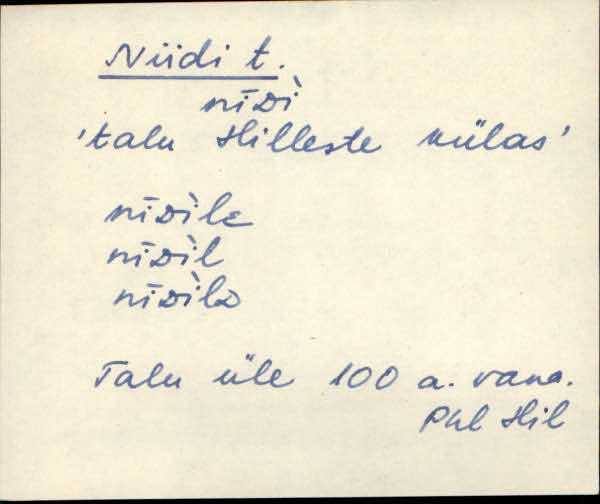 Niidi t.
nīᴅì
'talu Hilleste külas'
nīᴅìle
nīᴅìl
nīᴅìlᴅ
Talu üle 100 a. vana.
Phl Hil